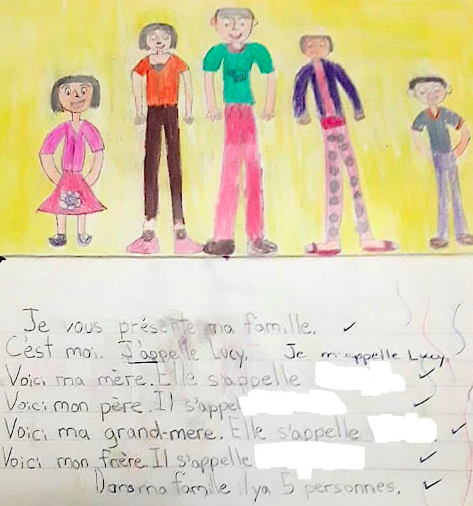 Je vous présente ma famille. ✓
C'est moi. J'appelle Lucy. Je m'appelle Lucy.
Voici ma mère. Elle s'appelle ✓
Voici mon père. Il s'appel ✓
Voici ma grand-mere. Elle s'appelle ✓
Voici mon frère. Il s'appelle ✓
Dans ma famille il ya 5 personnes. ✓